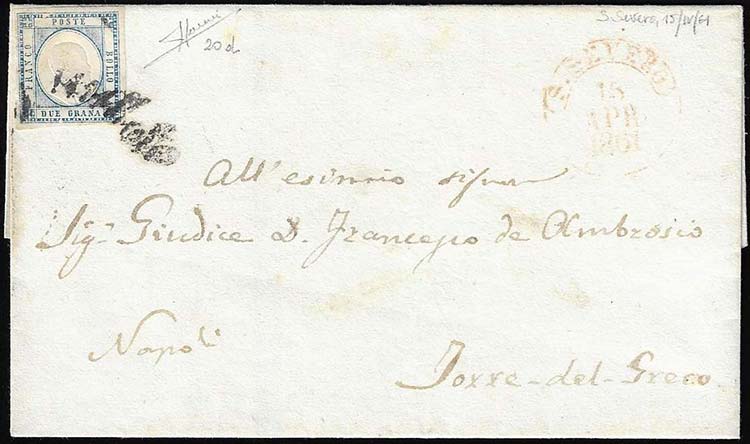 POSTE
FRANCO
BOLLO
DUE GRANA
20 d
S. Severo, 15/IV/61
S. SEVERO
15
APR
1861
All'esimio signor
Sig.r Giudice D. Francesco de Ambrosio
Napoli
Torre-del-Greco